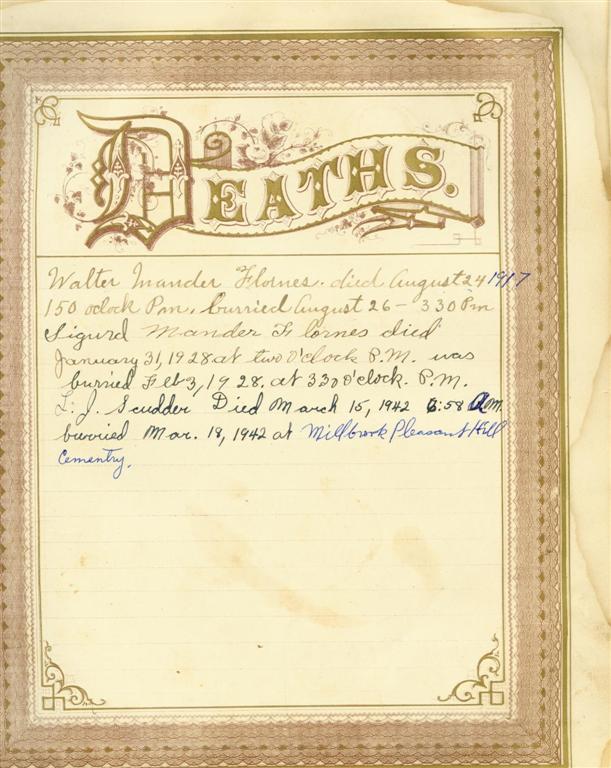 DEATHS.
Walter Mander Flornes. died August 24 1917
150 oclock Pm. burried August 26 - 330 Pm
Sigurd Mander Flornes died
January 31, 1928 at two O'clock P.M. was
burried Feb 3, 1928. at 330 O'clock. P.M.
L. J. Scudder Died March 15, 1942 6:58 A.M.
burried Mar. 18, 1942 at Millbrook Pleasant Hill
Cementry.